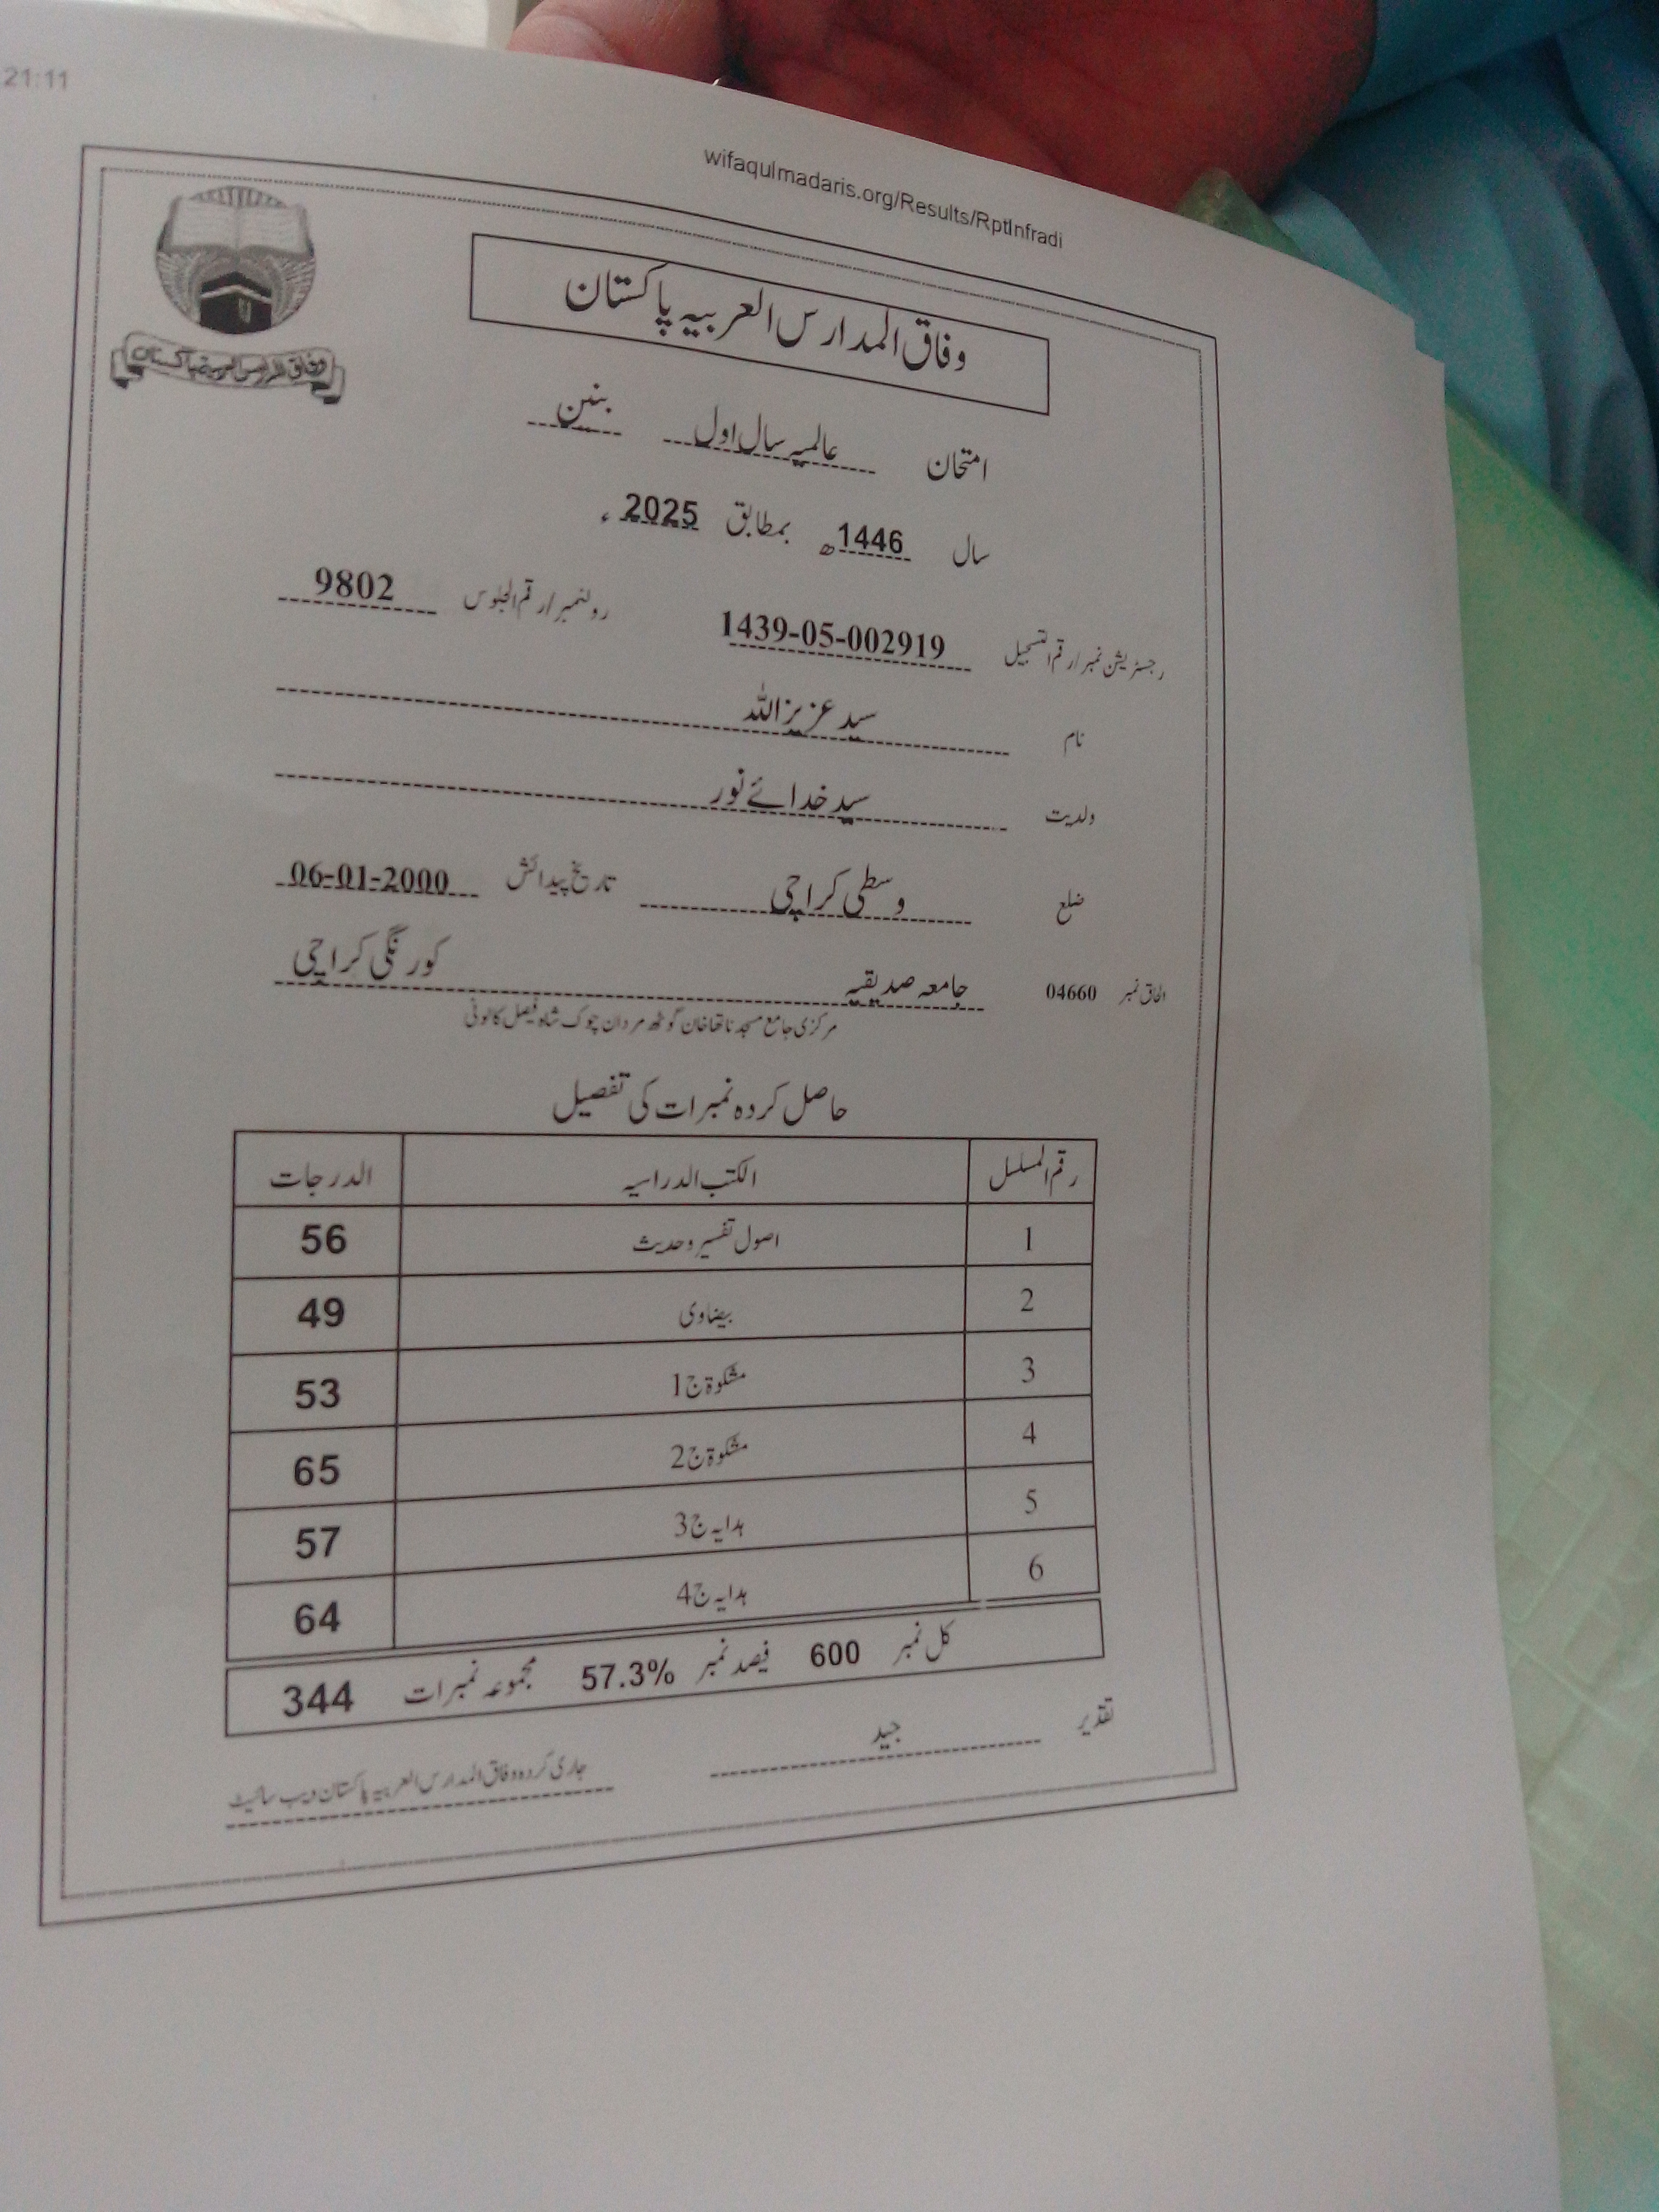 21:11
wifaqulmadaris.org/Results/RptInfradi
وفاق المدارس العربیہ پاکستان
وفاق المدارس العربیہ پاکستان
امتحان عالمیہ سال اول بنین
سال 1446ھ بمطابق 2025ء
رجسٹریشن نمبر/رقم التسجیل 1439-05-002919 رولنمبر/رقم الجلوس 9802
نام سید عزیز اللہ
ولدیت سید خدائے نور
ضلع وسطی کراچی تاریخ پیدائش 06-01-2000
الحاق نمبر 04660 جامعہ صدیقیہ کورنگی کراچی
مرکزی جامع مسجد ناتھا خان گوٹھ مردان چوک شاہ فیصل کالونی
حاصل کردہ نمبرات کی تفصیل
رقم المسلسل الکتب الدراسیہ الدرجات
1 اصول تفسیر وحدیث 56
2 بیضاوی 49
3 مشکوۃ ج1 53
4 مشکوۃ ج2 65
5 ہدایہ ج3 57
6 ہدایہ ج4 64
کل نمبر 600 فیصد نمبر 57.3% مجموعہ نمبرات 344
تقدیر جید
جاری کردہ وفاق المدارس العربیہ پاکستان ویب سائیٹ